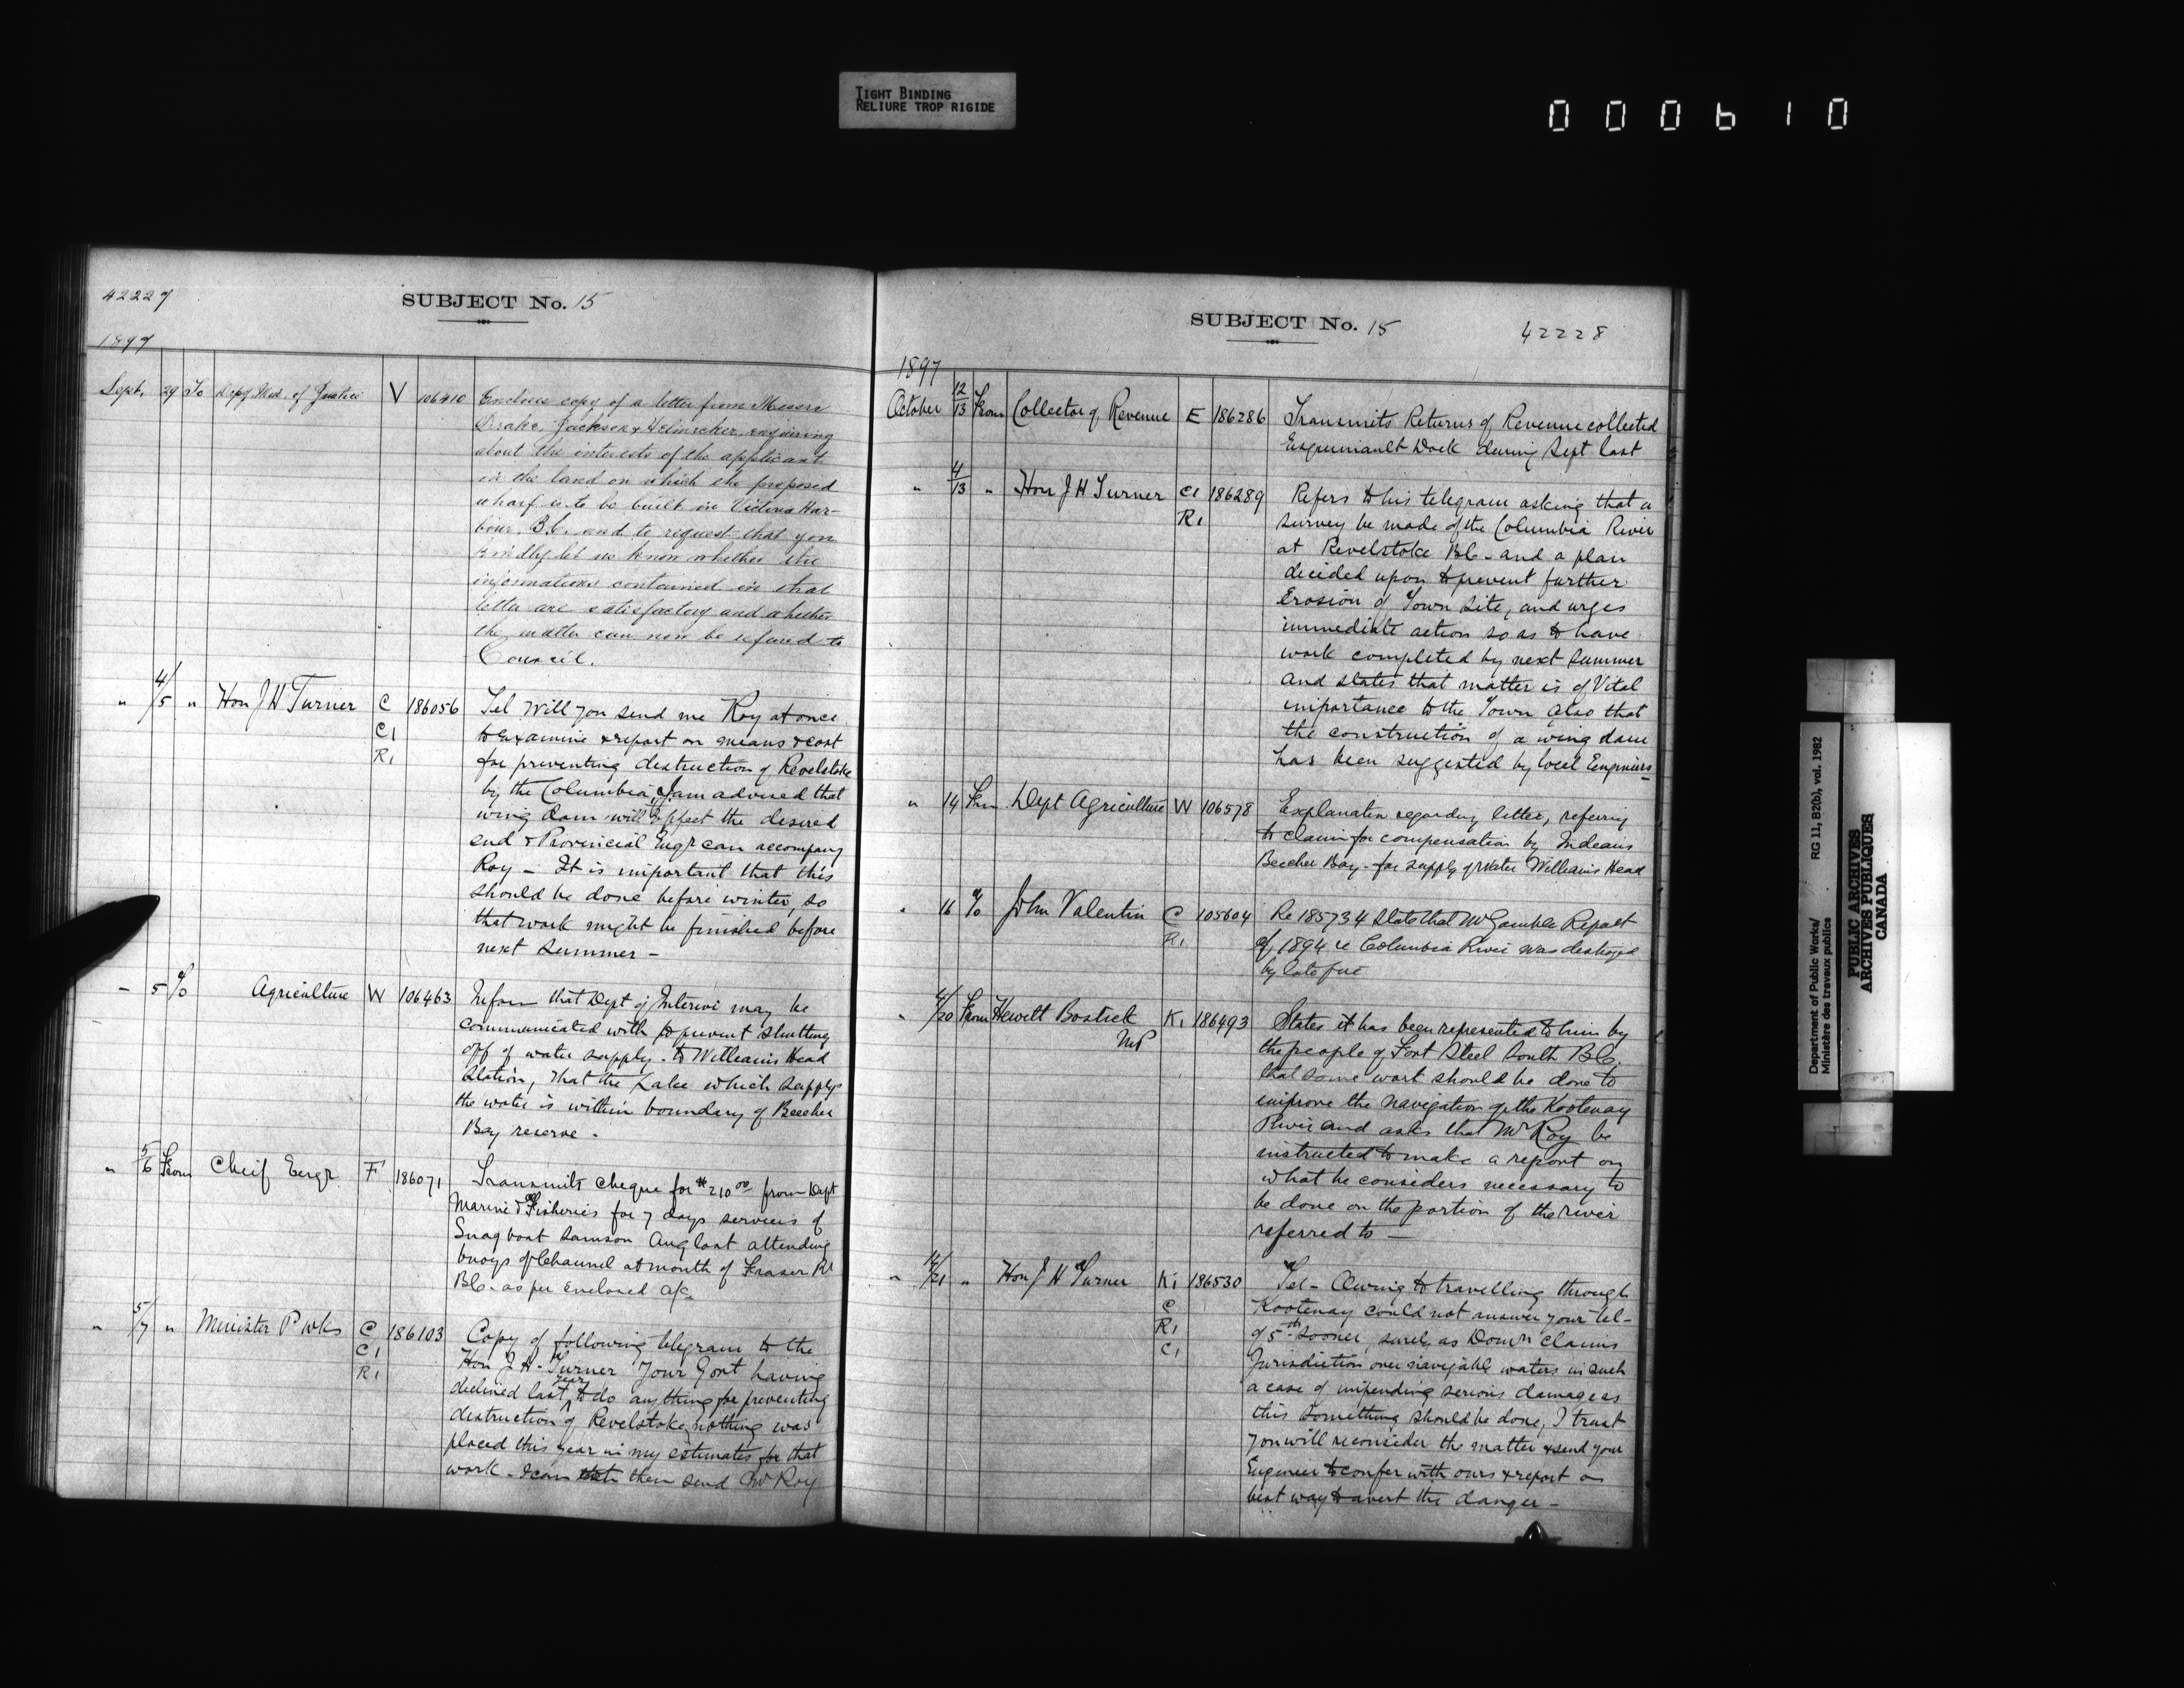 TIGHT BINDING
RELIURE TROP RIGIDE
000610
42227
SUBJECT No. 15
1897
Sept. 29 To Depy Min. of Justice V 106410 Enclose copy of a letter from Messrs
Drake, Jackson & Helmcken enquiring
about the interests of the applicant
in the land on which the proposed
wharf is to be built in Victoria Har-
bour, B.C. and to request that you
kindly let us know whether the
informations contained in that
letter are satisfactory and whether
the matter can now be referred to
Council.
" 4/5 " Hon J H Turner C 186056 Tel Will you send me Roy at once
C1 to examine & report on means & cost
R1 for preventing destruction of Revelstoke
by the Columbia, I am advised that
wing Dam will effect the desired
end & Provincial Engr can accompany
Roy – It is important that this
should be done before winter, so
that work might be finished before
next Summer –
" 5 To Agriculture W 106463 Inform that Dept of Interior may be
communicated with to prevent shutting
off of water supply to Williams Head
Station, that the Lake which supplys
the water is within boundary of Beecher
Bay reserve.
" 5/6 From Cheif Engr F 186071 Transmits cheque for $210.00 from Dept
Marine & Fisheries for 7 days services of
Snagboat Samson Aug last attending
buoys of Channel at mouth of Fraser Rr
BC. as per Enclosed a/c
" 5/7 " Minister P Wks C 186103 Copy of following telegram to the
C1 Hon J H- Turner Your Govt having
R1 declined last year to do anything for preventing
destruction of Revelstoke, nothing was
placed this year in my estimates for that
work. I can then send Mr Roy
SUBJECT No. 15
42228
1897
October 12/13 From Collector of Revenue E 186286 Transmits Returns of Revenue collected
Esquimault Dock during Sept last
" 4/13 " Hon J H Turner C1 186289 Refers to his telegram asking that a
R1 survey be made of the Columbia River
at Revelstoke BC. and a plan
decided upon to prevent further
Erosion of Town site, and urges
immediate action so as to have
work completed by next summer
and states that matter is of Vital
importance to the Town also that
the construction of a wing dam
has been suggested by local Engineers –
" 14 From Dept Agriculture W 106578 Explanation regarding letter, refering
to claim for compensation by Indians
Beecher Bay. for supply of Water Williams Head
" 16 To John Valentin C 105604 Re 185734 State that Mr Gamble Report
R1 of 1894 re Columbia River was destroyed
by late fire
" 4/20 From Hewitt Bostick K1 186493 States it has been represented to him by
MP the people of Fort Steel South BC.
that some work should be done to
improve the navigation of the Kootenay
River and asks that Mr Roy be
instructed to make a report on
what he considers necessary to
be done on the portion of the river
referred to –
" 14/21 " Hon J H Turner K1 186530 Tel – Owing to travelling through
C Kootenay could not answer your tel-
R1 of 5th sooner, surely as Domn claims
C1 Jurisdiction over navigable waters in such
a case of impending serious damage as
this something should be done, I trust
you will reconsider the matter & send your
Engineer to confer with ours & report on
best way to avert the danger –
Department of Public Works/
Ministère des travaux publics
RG 11, B2(b), vol. 1982
PUBLIC ARCHIVES
ARCHIVES PUBLIQUES
CANADA